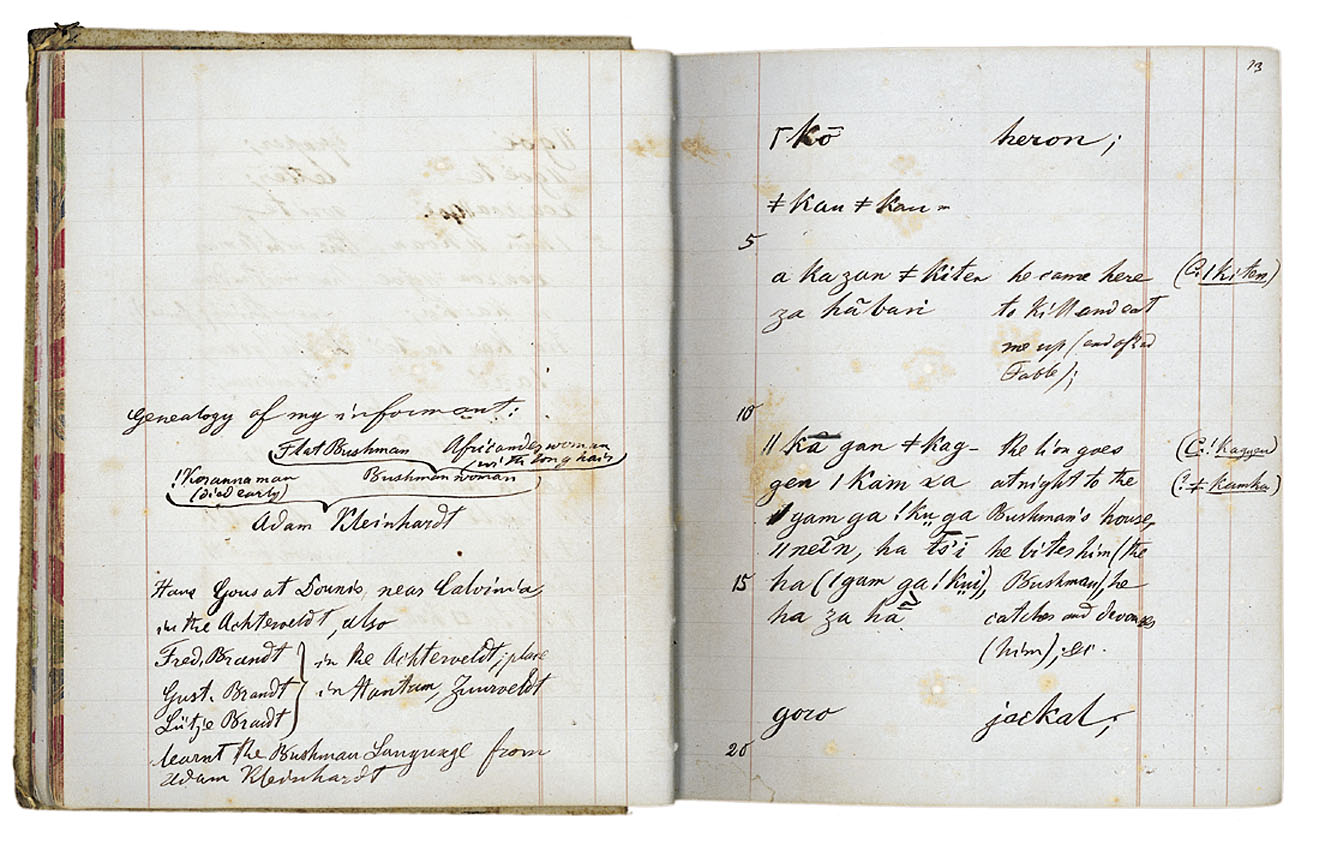 Genealogy of my informant:
Flat Bushman Africander woman
(with long hair)
!Koranna man Bushman woman
(died early)
Adam Kleinhardt
Hans Gous at Dounis, near Calvinia,
in the Achterveldt, also
Fred. Brandt
Gust. Brandt
Lütje Brandt
in the Achterveldt; place
in Hantum, Zuurveldt
learnt the Bushman Language from
Adam Kleinhardt
13
kō heron;
ǂkau ǂkau =
5
a ka zun ǂkiten he came here (C. !kiten)
za hā bari to kill and eat
me up (end of a
Fable);
10
ǁkā gan ǂkag- the lion goes (C. !kaggen)
gen ǀkam xa at night to the (? ǂkamka)
ǀgam ga !kṳ ga Bushman's house,
ǁneīn, ha ts'ī he bites him (the
15 ha (ǀgam ga !kṳi), Bushman), he
ha za hā catches and devours
(him);
goro jackal;
20